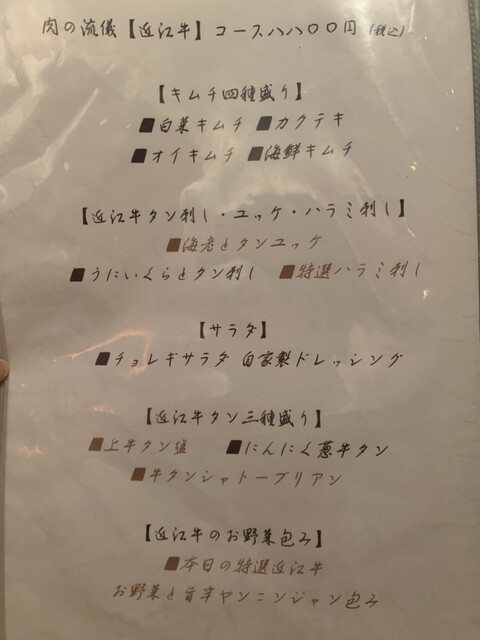 肉の流儀【近江牛】コース八八〇〇円(税込)
【キムチ四種盛り】
■白菜キムチ ■カクテキ
■オイキムチ ■海鮮キムチ
【近江牛タン刺し・ユッケ・ハラミ刺し】
■海老とタンユッケ
■うにいくらとタン刺し ■特選ハラミ刺し
【サラダ】
■チョレギサラダ 自家製ドレッシング
【近江牛タン三種盛り】
■上牛タン塩 ■にんにく葱牛タン
■牛タンシャトーブリアン
【近江牛のお野菜包み】
■本日の特選近江牛
お野菜と旨辛ヤンニンジャン包み